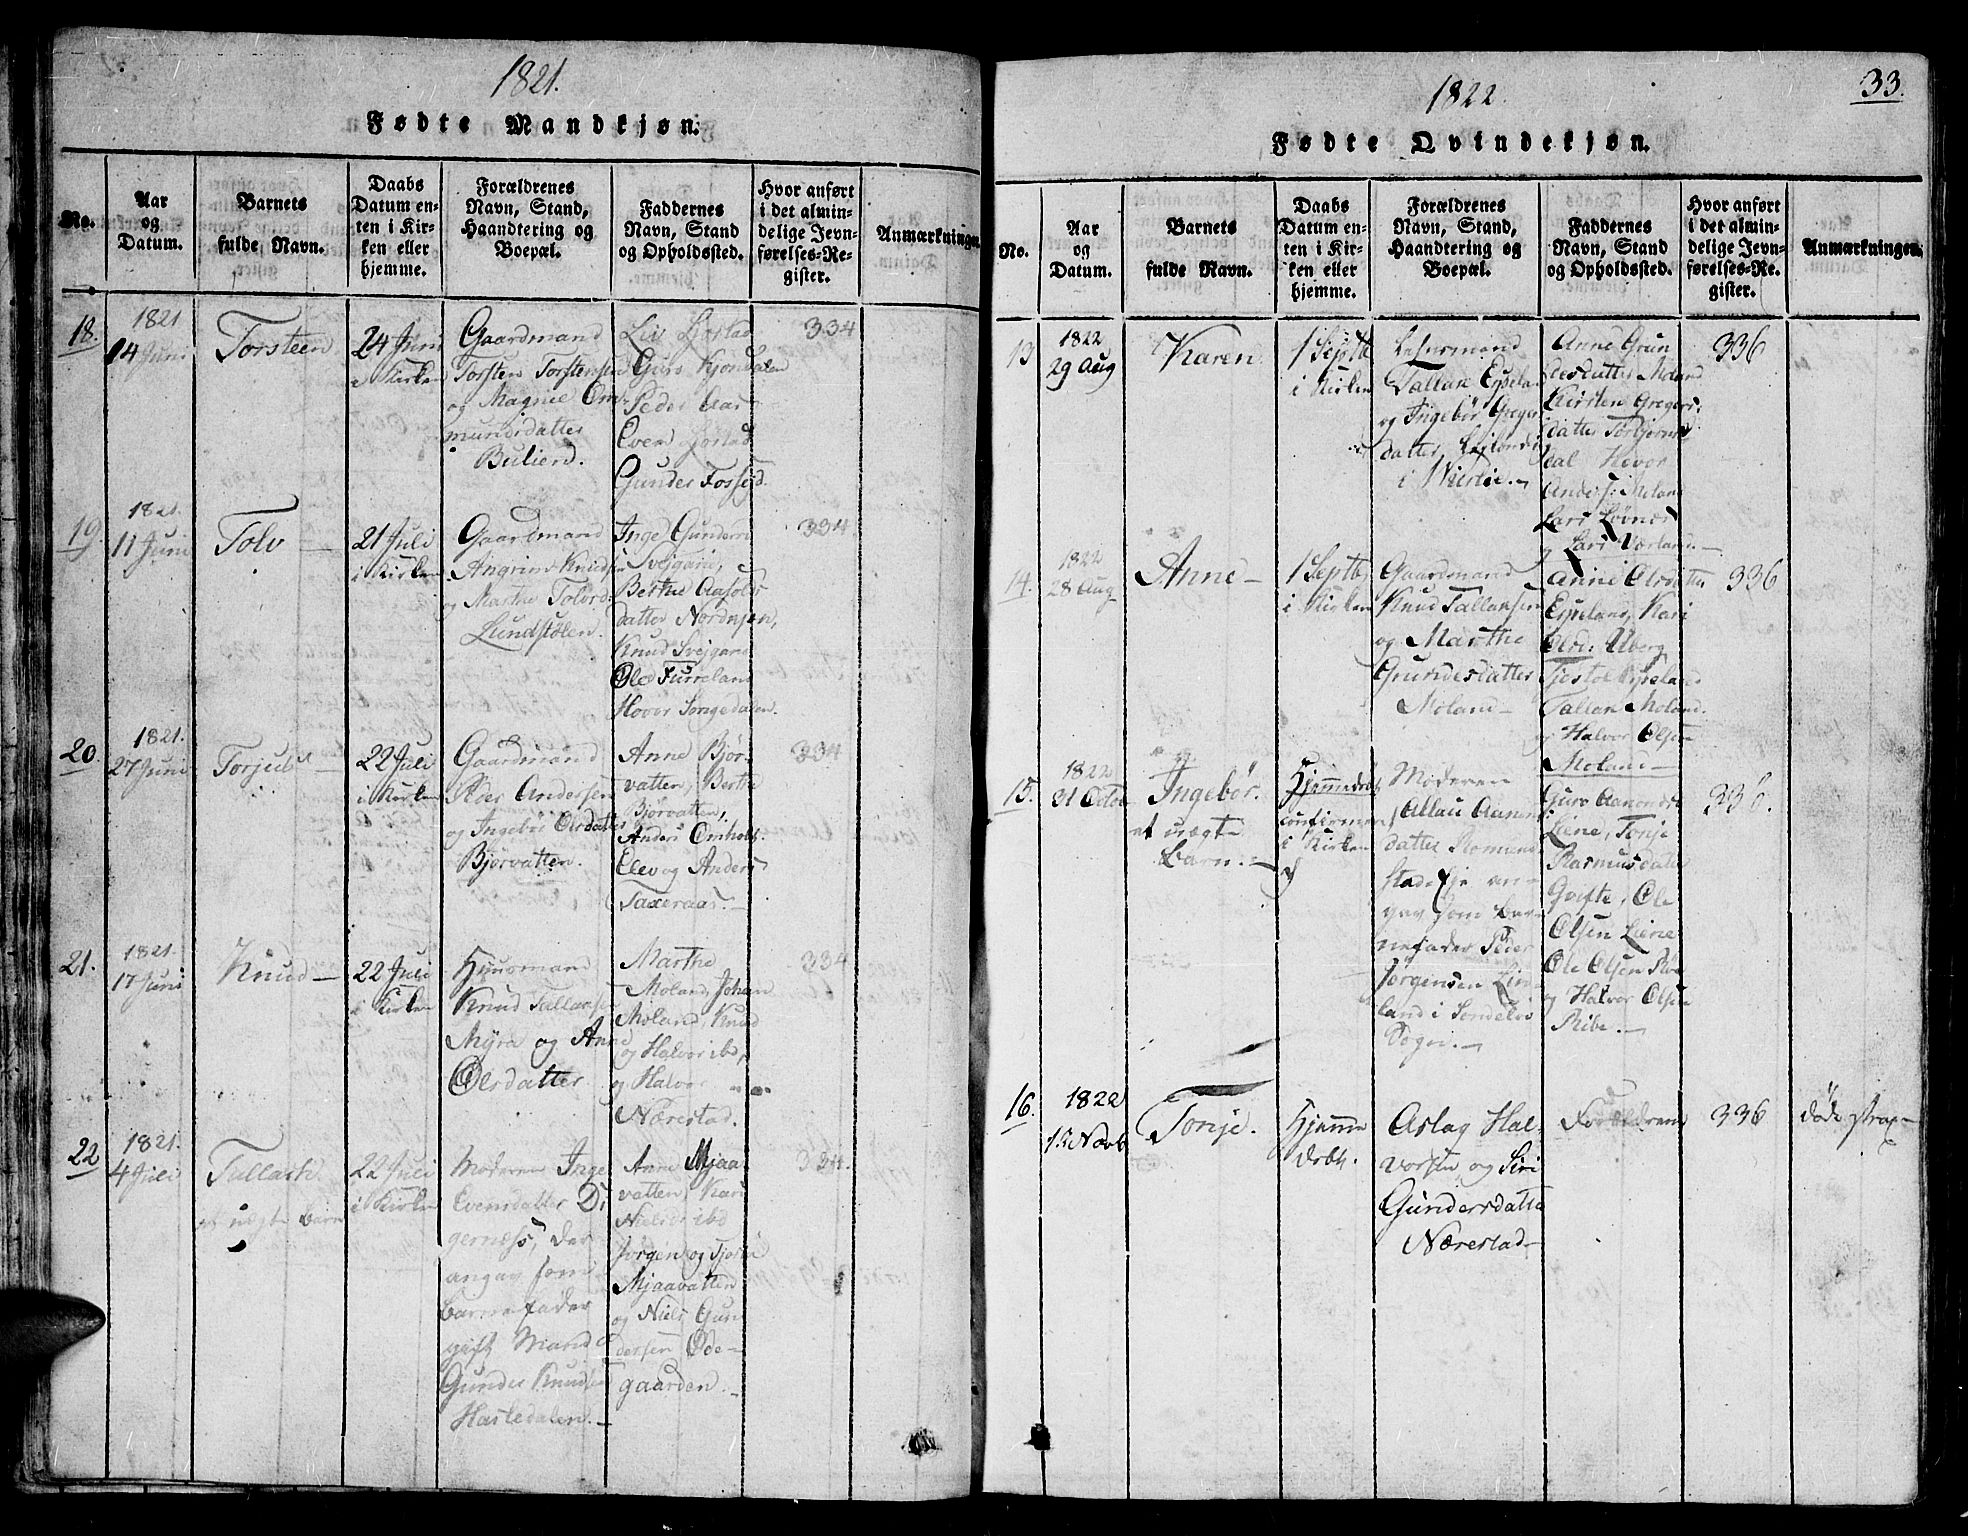 1821.
Fødte Mandkjøn.
No.
Aar
og
Datum.
Barnets
fulde Navn.
Daabs
Datum en-
ten i Kir-
ken eller
hjemme.
Forældrenes
Navn, Stand,
Haandtering og
Boepæl.
Faddernes
Navn, Stand
og Opholdssted.
Hvor anført
i det almin-
delige Jevn-
førelses-Re-
gister.
Anmærkninger
18.
1821
14 Juni
Torsteen
24 Juni
i Kirken
Gaardmand
Torsten Torstensen
og Magnie Om-
mundsdatter
Buliend.
Liv
Guro Kjøndalen
Peder Aas
Even
Gunder Fossejd
334
19.
1821.
11 Juni
Tolv
21 Juli
i Kirken
Gaardmand
Angrim Knudsen
og Marthe Tolvsd.
Lundstølen.
Inge Gunders
Svejgard,
Berthe Aasols
datter Nordnsen,
Knud Svejgard
Ole Furreland
Hovor Songedalen.
334
20.
1821.
27 Juni
Torjus
22 Juli
i Kirken
Gaardmand
Peder Andersen
og Ingebør Olsdatter
Bjørvatten.
Anne Bjør-
vatten, Berthe
Bjørvatten,
Anders Omholt
Elev og Anders
Taxeraas.
334
21.
1821.
17 Juni
Knud
22 Juli
i Kirken
Huusmand
Knud Tallaksen
Myra og Anne
Olsdatter
Marthe
Moland, Johan
Moland, Knud
og Halvor ibd,
og Halvor
Nærestad.
334
22
1821.
4 Juli
Tallak
et uægte barn
22 Juli
i Kirken
Moderen Inge
Evensdatter Di
gernæss, der
angav som
barnefader
gift Mand
Gunder Knudsen
Hasledalen.
Anne Mjaa
vatten, Kari
Niels ibd
Jørgen og Tjøstel
Mjaavatten
og Niels Gun
dersen Øde-
gaarden.
334.
33.
1822.
Fødte Qvindekjøn.
No.
Aar
og
Datum.
Barnets
fulde Navn.
Daabs
Datum en-
ten i Kir-
ken eller
hjemme.
Forældrenes
Navn, Stand,
Haandtering og
Boepæl.
Faddernes
Navn, Stand
og Opholdssted.
Hvor anført
i det almin-
delige Jevn-
førelses-Re-
gister.
Anmærkninger
13
1822
29 Aug
Karen
1 Septb
i Kirken
Lehnsmand
Tallak Espeland
og Ingebør Greger
datter
i
Anne Grun
desdatter Moland
Kirsten Gregers
datter Torbjørns
dal Hovor
Anders: Moland
Lars Løvnes
og Lars Værland.
336
14.
1822
28 Aug
Anne
1 Septb
i Kirken
Gaardmand
Knud Tallaksen
og Marthe
Grundesdatter
Moland
Anne Olsdatter
Espeland, Kari
Ols: Uberg
Tjøstol Espeland
Tallak Moland
og Halvor Olsen
Moland
336
15.
1822
31 Octob
Ingebør.
et uægte
barn.
Hjemmedøbt
confirmeret
i Kirken
Moderen
Allau Aanon
datter Romund
stad Eje an-
gav som bar-
nefader Peder
Jørgensen Lin-
land i Søndelev
Sogn.
Guro Aanonds
Liene, Tonje
Rasmusdatter
Gvifte, Ole
Olsen Liene
Ole Olsen Roe
og Halvor Olsen
Ribe.
336.
16.
1822
13 Novb
Tonje.
Hjemme
døbt.
Aslag Hal-
vorsen og Siri
Gundersdatter
Nærestad
Forældrene
336
døde strax